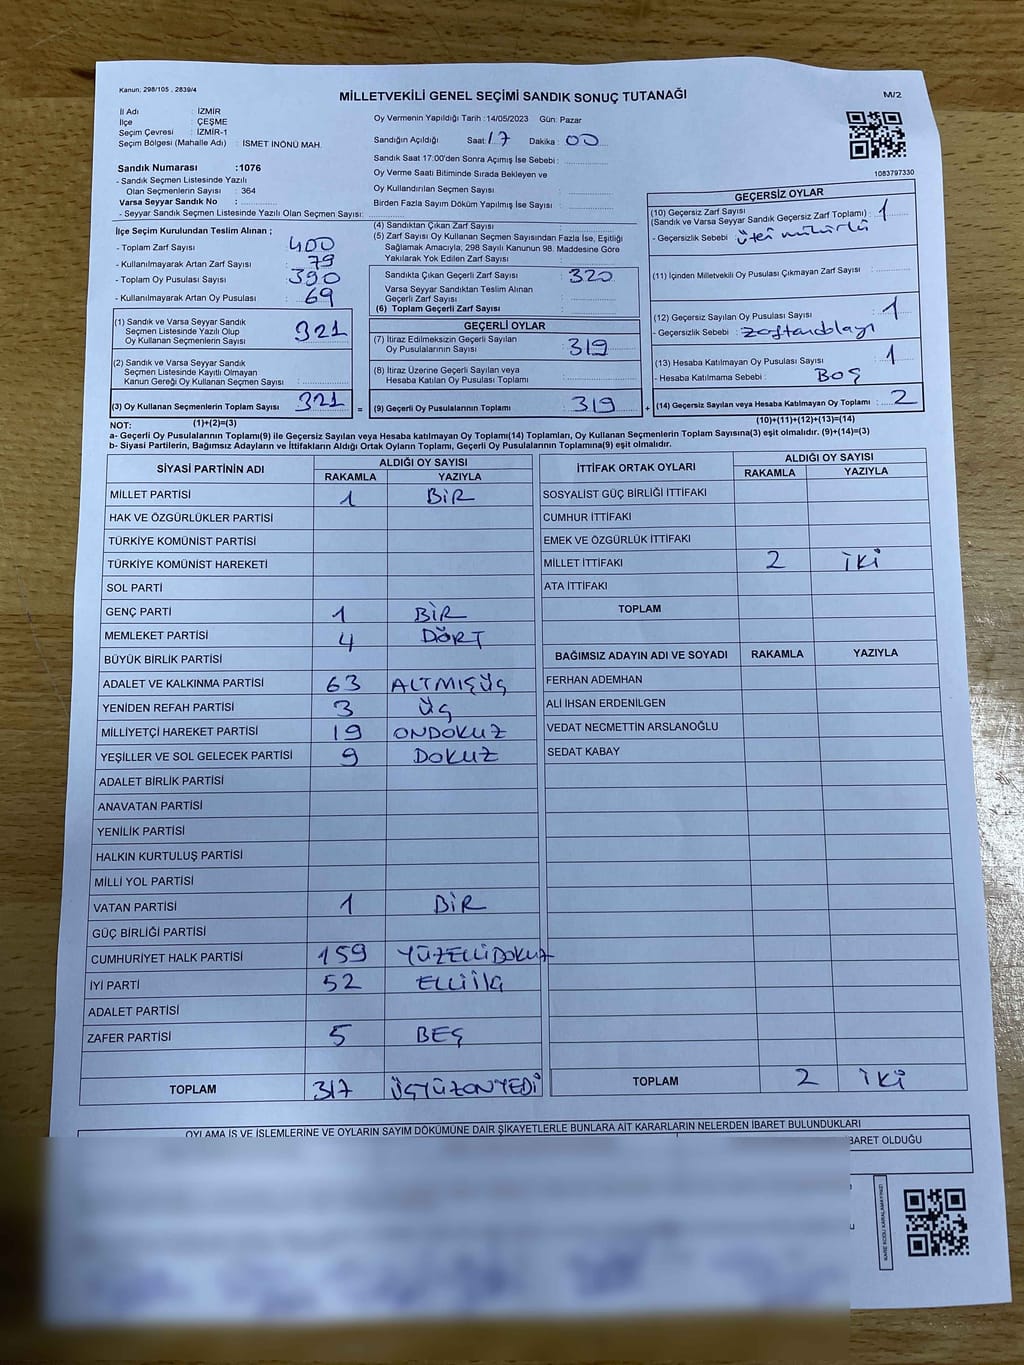 Kanun, 298/105 , 2839/4
MİLLETVEKİLİ GENEL SEÇİMİ SANDIK SONUÇ TUTANAĞI
M/2
İl Adı : İZMİR
İlçe : ÇEŞME
Seçim Çevresi : İZMİR-1
Seçim Bölgesi (Mahalle Adı) : İSMET İNÖNÜ MAH.
Sandık Numarası :1076
- Sandık Seçmen Listesinde Yazılı
Olan Seçmenlerin Sayısı : 364
Varsa Seyyar Sandık No :
- Seyyar Sandık Seçmen Listesinde Yazılı Olan Seçmen Sayısı:
Oy Vermenin Yapıldığı Tarih :14/05/2023 Gün: Pazar
Sandığın Açıldığı Saat: 17 Dakika : 00
Sandık Saat 17:00'den Sonra Açımış İse Sebebi :
Oy Verme Saati Bitiminde Sırada Bekleyen ve
Oy Kullandırılan Seçmen Sayısı :
Birden Fazla Sayım Döküm Yapılmış İse Sayısı :
1083797330
İlçe Seçim Kurulundan Teslim Alınan ;
- Toplam Zarf Sayısı : 400
- Kullanılmayarak Artan Zarf Sayısı : 79
- Toplam Oy Pusulası Sayısı : 390
- Kullanılmayarak Artan Oy Pusulası : 69
(1) Sandık ve Varsa Seyyar Sandık
Seçmen Listesinde Yazılı Olup
Oy Kullanan Seçmenlerin Sayısı : 321
(2) Sandık ve Varsa Seyyar Sandık
Seçmen Listesinde Kayıtlı Olmayan
Kanun Gereği Oy Kullanan Seçmen Sayısı :
(3) Oy Kullanan Seçmenlerin Toplam Sayısı : 321
(4) Sandıktan Çıkan Zarf Sayısı :
(5) Zarf Sayısı Oy Kullanan Seçmen Sayısından Fazla İse, Eşitliği
Sağlamak Amacıyla; 298 Sayılı Kanunun 98. Maddesine Göre
Yakılarak Yok Edilen Zarf Sayısı :
Sandıkta Çıkan Geçerli Zarf Sayısı : 320
Varsa Seyyar Sandıktan Teslim Alınan
Geçerli Zarf Sayısı :
(6) Toplam Geçerli Zarf Sayısı :
GEÇERLİ OYLAR
(7) İtiraz Edilmeksizin Geçerli Sayılan
Oy Pusulalarının Sayısı : 319
(8) İtiraz Üzerine Geçerli Sayılan veya
Hesaba Katılan Oy Pusulası Toplamı :
= (9) Geçerli Oy Pusulalarının Toplamı : 319
GEÇERSİZ OYLAR
(10) Geçersiz Zarf Sayısı
(Sandık ve Varsa Seyyar Sandık Geçersiz Zarf Toplamı) : 1
- Geçersizlik Sebebi : mühürlü
(11) İçinden Milletvekili Oy Pusulası Çıkmayan Zarf Sayısı :
(12) Geçersiz Sayılan Oy Pusulası Sayısı : 1
- Geçersizlik Sebebi : zarftan dolayı
(13) Hesaba Katılmayan Oy Pusulası Sayısı : 1
- Hesaba Katılmama Sebebi : BOŞ
+ (14) Geçersiz Sayılan veya Hesaba Katılmayan Oy Toplamı : 2
NOT: (1)+(2)=(3) (10)+(11)+(12)+(13)=(14)
a- Geçerli Oy Pusulalarının Toplamı(9) ile Geçersiz Sayılan veya Hesaba Katılmayan Oy Toplamı(14) Toplamları, Oy Kullanan Seçmenlerin Toplam Sayısına(3) eşit olmalıdır. (9)+(14)=(3)
b- Siyasi Partilerin, Bağımsız Adayların ve İttifakların Aldığı Ortak Oyların Toplamı, Geçerli Oy Pusulalarının Toplamına(9) eşit olmalıdır.
SİYASİ PARTİNİN ADI ALDIĞI OY SAYISI
RAKAMLA YAZIYLA
MİLLET PARTİSİ 1 BİR
HAK VE ÖZGÜRLÜKLER PARTİSİ
TÜRKİYE KOMÜNİST PARTİSİ
TÜRKİYE KOMÜNİST HAREKETİ
SOL PARTİ
GENÇ PARTİ 1 BİR
MEMLEKET PARTİSİ 4 DÖRT
BÜYÜK BİRLİK PARTİSİ
ADALET VE KALKINMA PARTİSİ 63 ALTMIŞÜÇ
YENİDEN REFAH PARTİSİ 3 ÜÇ
MİLLİYETÇİ HAREKET PARTİSİ 19 ONDOKUZ
YEŞİLLER VE SOL GELECEK PARTİSİ 9 DOKUZ
ADALET BİRLİK PARTİSİ
ANAVATAN PARTİSİ
YENİLİK PARTİSİ
HALKIN KURTULUŞ PARTİSİ
MİLLİ YOL PARTİSİ
VATAN PARTİSİ 1 BİR
GÜÇ BİRLİĞİ PARTİSİ
CUMHURİYET HALK PARTİSİ 159 YÜZELLİDOKUZ
İYİ PARTİ 52 ELLİİKİ
ADALET PARTİSİ
ZAFER PARTİSİ 5 BEŞ
TOPLAM 317 ÜÇYÜZONYEDİ
İTTİFAK ORTAK OYLARI ALDIĞI OY SAYISI
RAKAMLA YAZIYLA
SOSYALİST GÜÇ BİRLİĞİ İTTİFAKI
CUMHUR İTTİFAKI
EMEK VE ÖZGÜRLÜK İTTİFAKI
MİLLET İTTİFAKI 2 İKİ
ATA İTTİFAKI
TOPLAM
BAĞIMSIZ ADAYIN ADI VE SOYADI RAKAMLA YAZIYLA
FERHAN ADEMHAN
ALİ İHSAN ERDENİLGEN
VEDAT NECMETTİN ARSLANOĞLU
SEDAT KABAY
TOPLAM 2 İKİ
OYLAMA İŞ VE İŞLEMLERİNE VE OYLARIN SAYIM DÖKÜMÜNE DAİR ŞİKAYETLERLE BUNLARA AİT KARARLARIN NELERDEN İBARET BULUNDUKLARI
İBARET OLDUĞU
KARE KODU KARALAMAYINIZ!